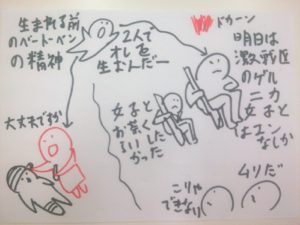 生まれる前
のベートーベン
の精神
2人で
オレを
生むんだー
ドカーン
明日は
激戦区
のゲル
ニカ
女子と
はエン
なしか
女子と
が
したか
った
大丈夫で
こりゃ
できない
ムリだ